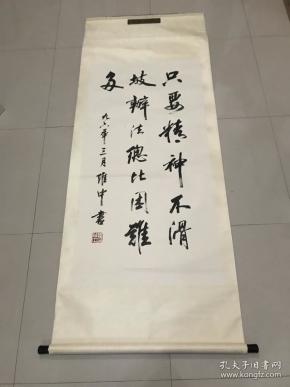 只要精神不滑
坡辦法總比困難
多
九六年三月維中書
孔夫子旧书网